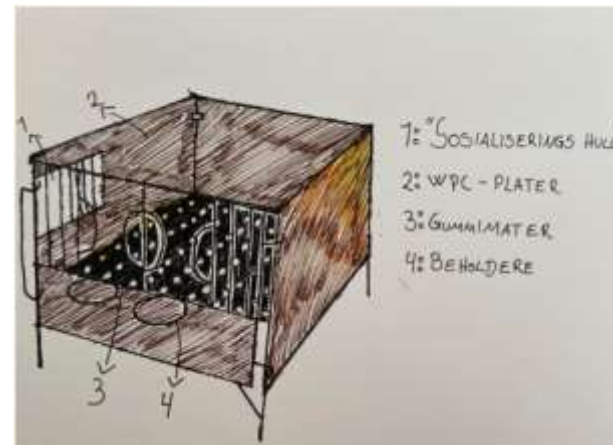 1: "SOSIALISERINGS HULL
2: WPC - PLATER
3: GUMMIMATER
4: BEHOLDERE
1
2
3
4